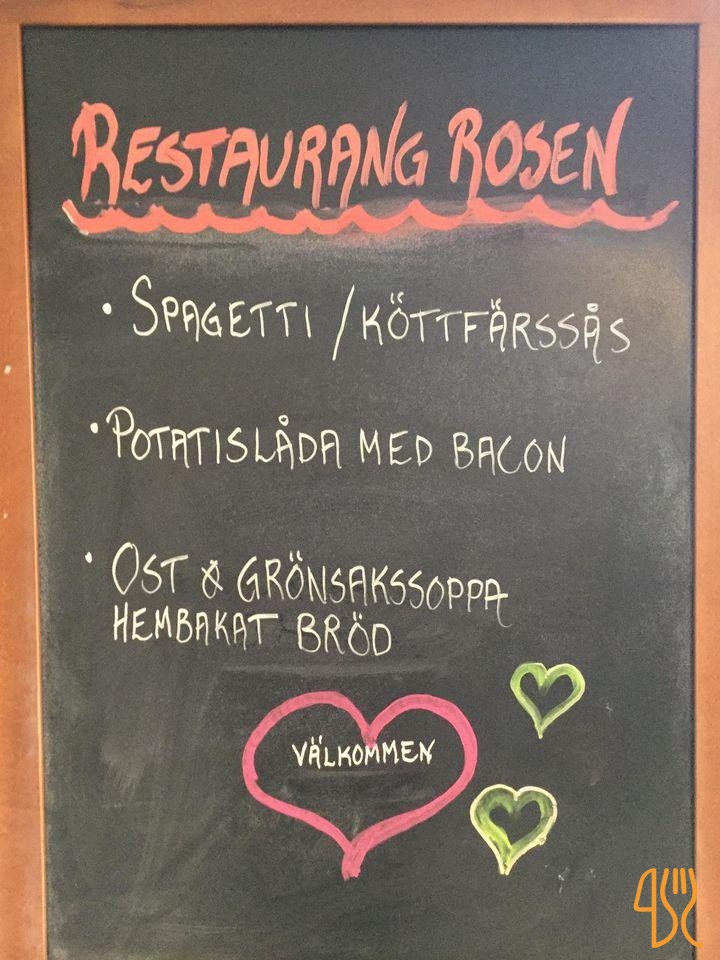 RESTAURANG ROSEN
• SPAGETTI / KÖTTFÄRSSÅS
• POTATISLÅDA MED BACON
• OST & GRÖNSAKSSOPPA
HEMBAKAT BRÖD
VÄLKOMMEN